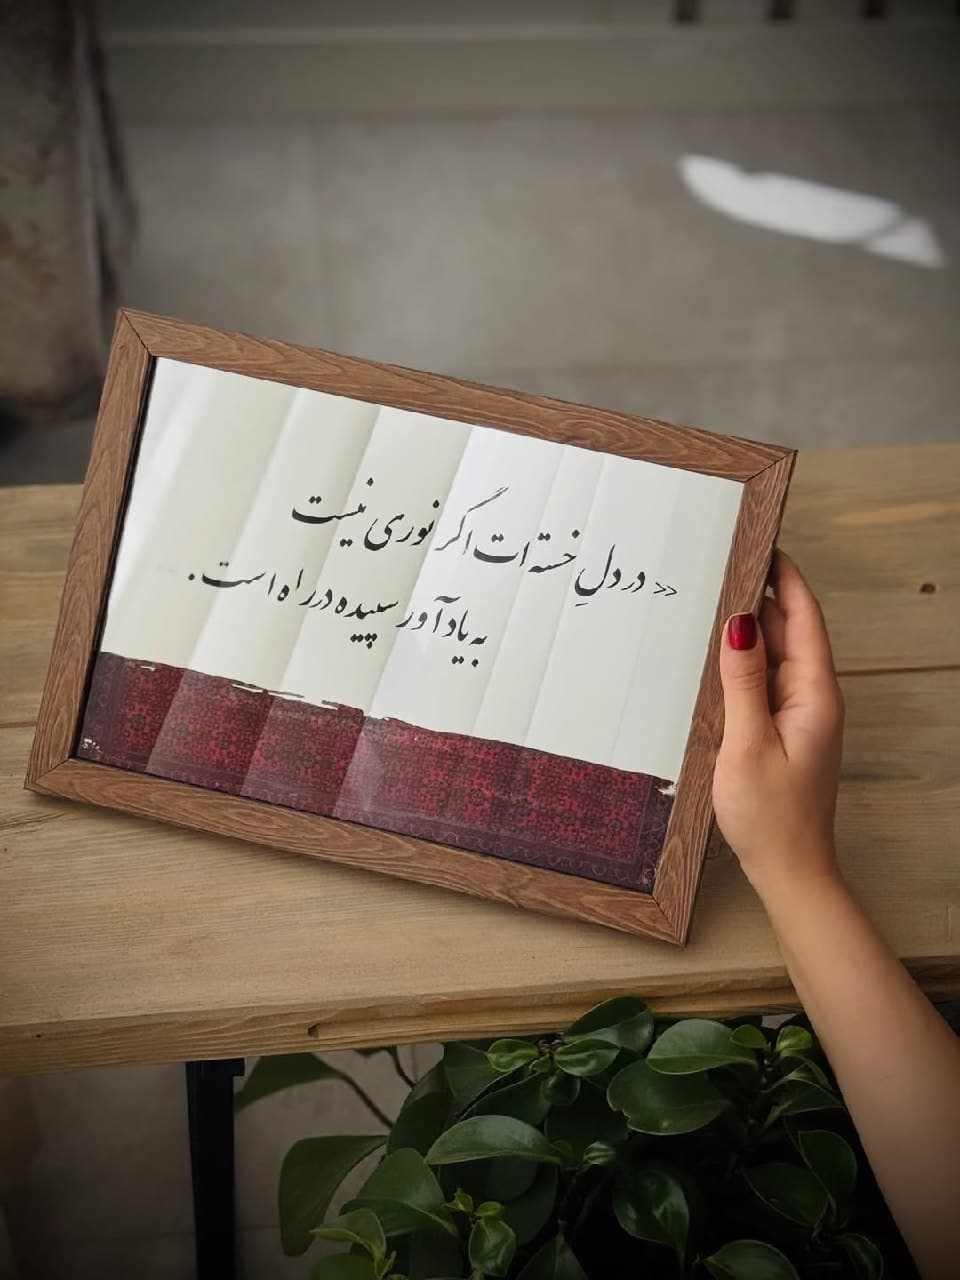 « در دلِ خسته ات اگر نوری نیست
به یاد آور سپیده در راه است.